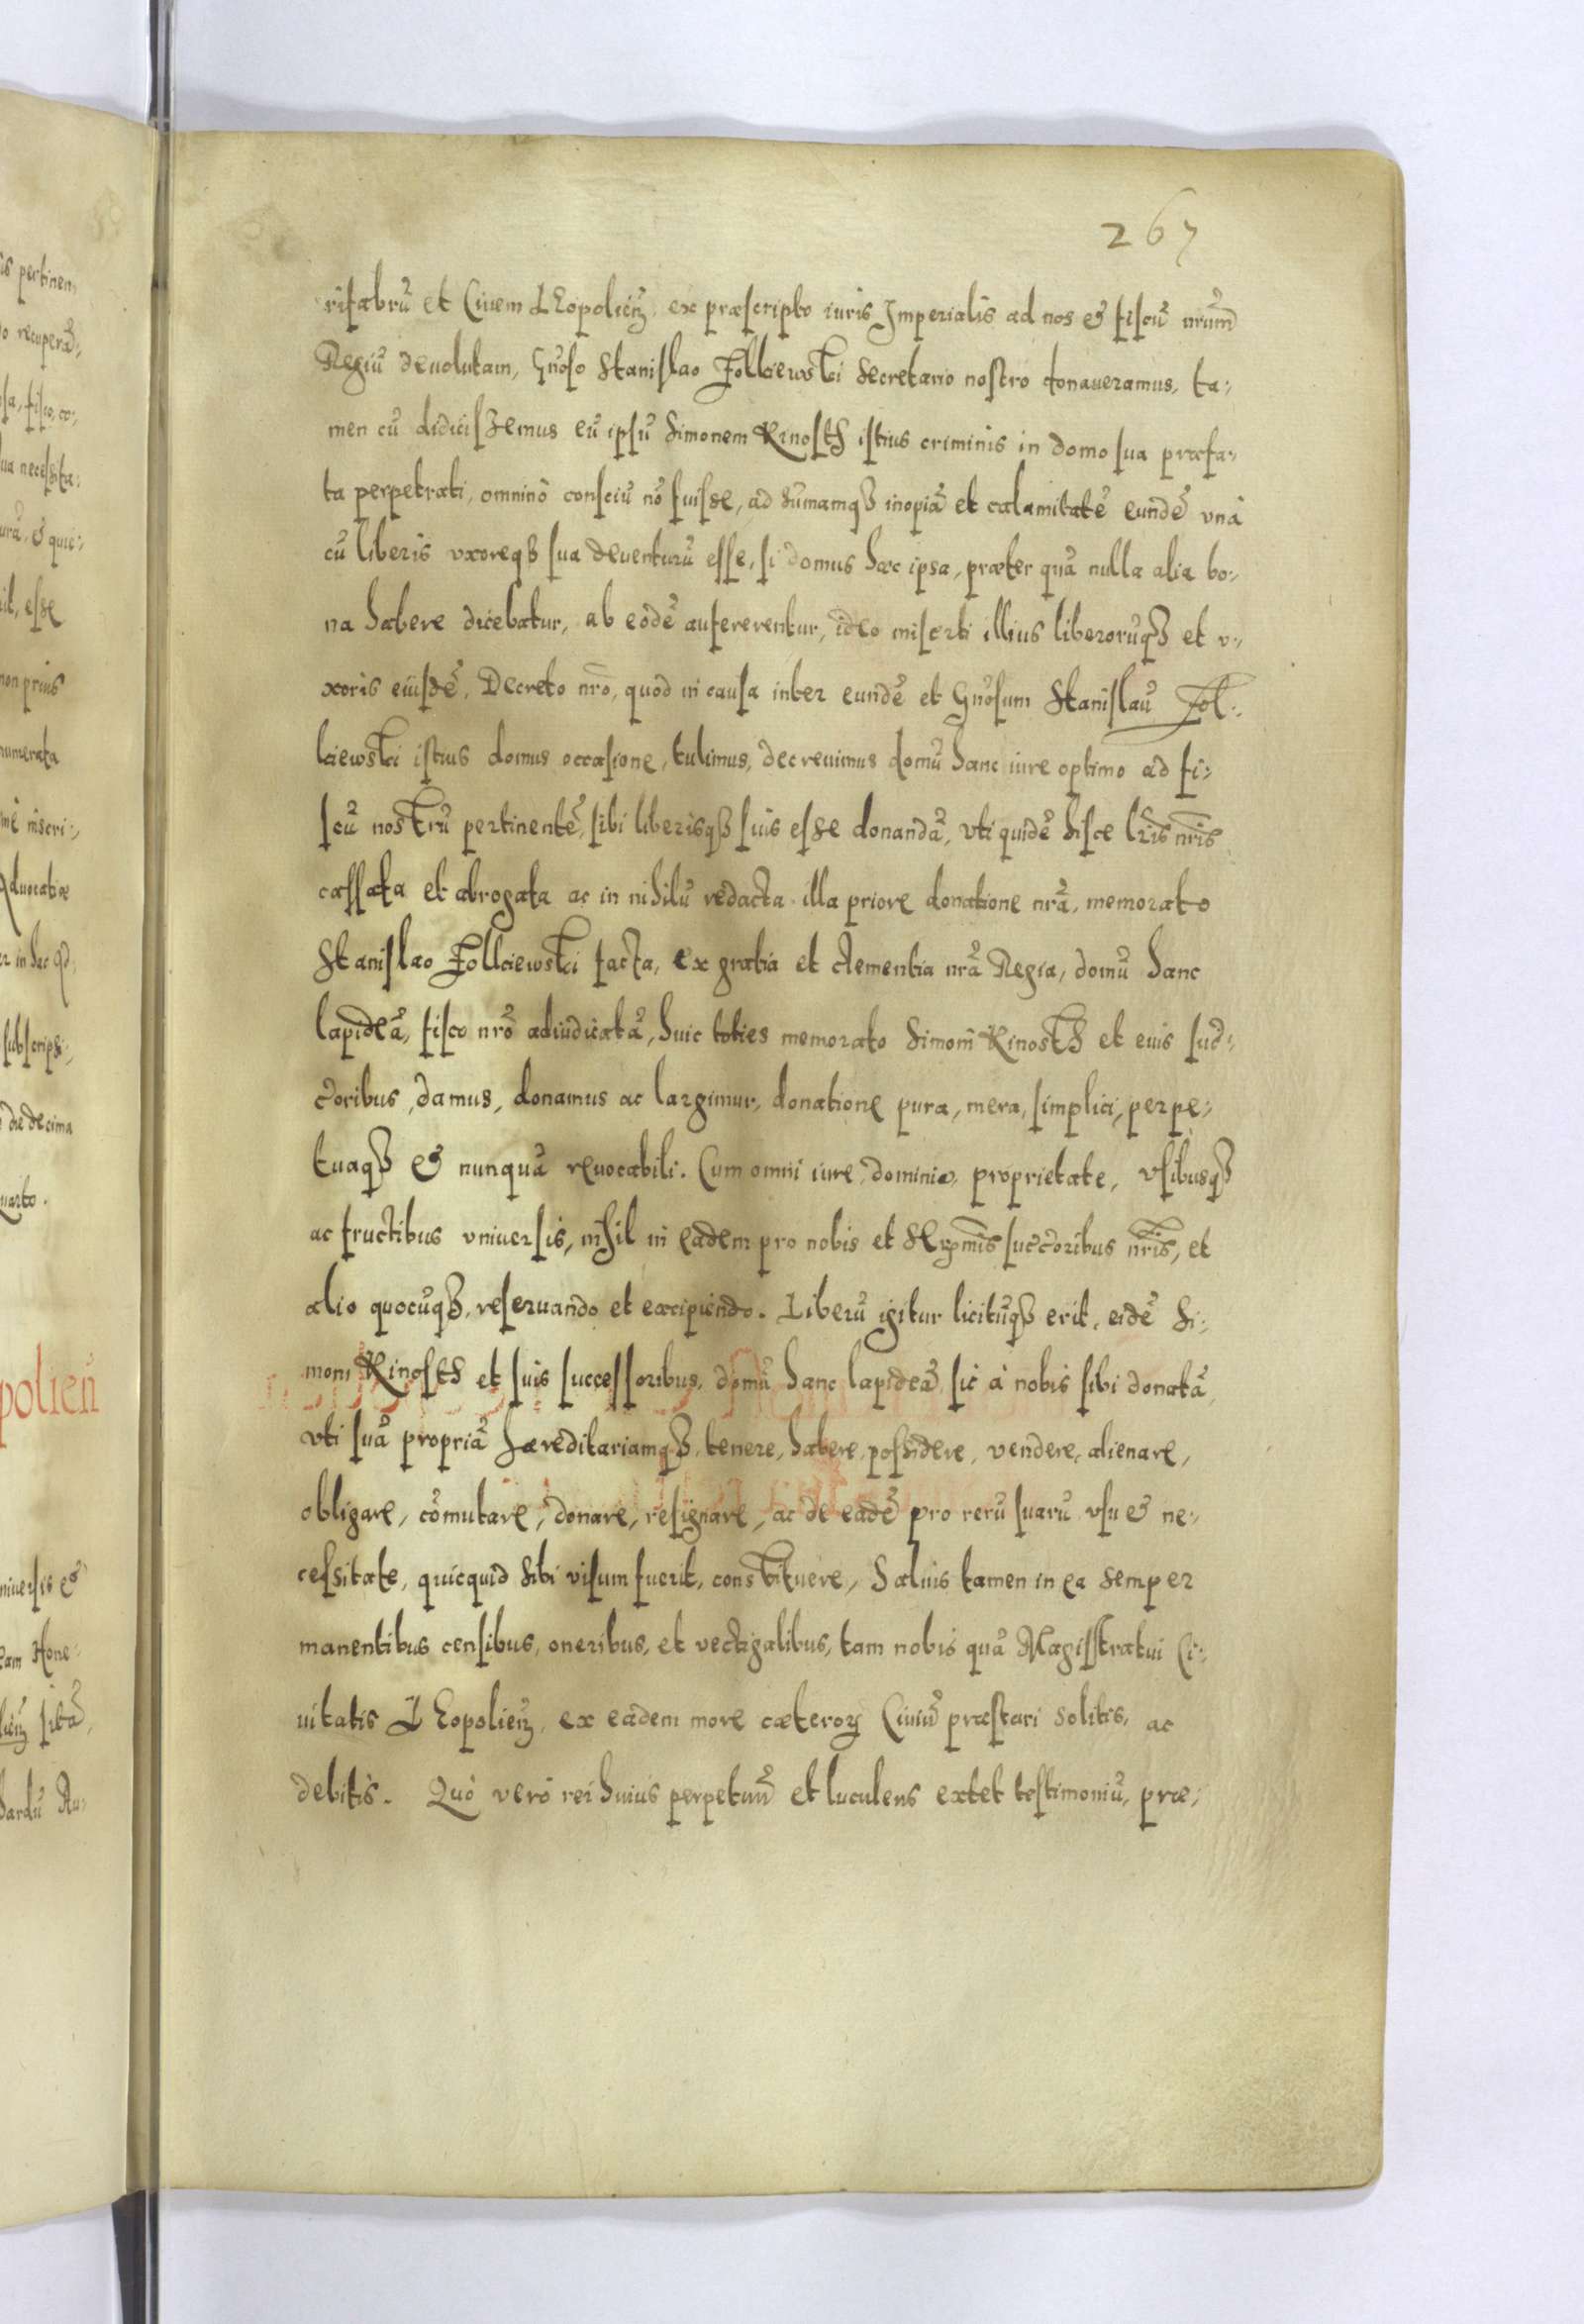 267
rifabrũ et Ciuem LEopolien̄ ex præscripto iuris Imperialis ad nos & fiscũ nrũm
Regiũ deuolutam, Gnoso Stanislao Zollciewski Secretario nostro donaueramus, ta:
men cũ didicissemus eũ ipsũ Simonem Rinosth istius criminis in domo sua præfa:
ta perpetrati, omninò consciũ nõ fuisse, ad sũmamq3 inopiã et calamitatẽ eundẽ vnà
cũ liberis vxoreq3 sua deuenturũ esse, si domus hæc ipsa, præter quã nulla alia bo:
na habere dicebatur, ab eodẽ aufererentur, ideo miserti illius liberorũq3 et v:
xoris eiusdẽ, Decreto nr̃o, quod in causa inter eundẽ et Gnosum Stanislaũ Zol:
lciewski istius domus occasione, tulimus, decreuimus domũ hanc iure optimo ad fi:
scũ nostrũ pertinentẽ, sibi liberisq3 suis esse donandã, vti quidẽ hisce lr̃is nr̃is
cassata et abrogata ac in nihilũ redacta illa priore donatione nr̃a, memorato
Stanislao Zollciewski facta, ex gratia et clementia nr̃a Regia, domũ hanc
lapideã, fisco nr̃o adiudicatã, huic toties memorato Simoni Rinosth et euis suc̃:
c̃oribus, damus, donamus ac largimur, donatione pura, mera, simplici, perpe:
tuaq3 & nunquã reuocabili. Cum omni iure, dominio, proprietate, vsibusq3
ac fructibus vniuersis, nihil in eadem pro nobis et Serp̃mis suc̃c̃oribus nr̃is, et
alio quocũq3, reseruando et excipiendo. Liberũ igitur licitũq3 erit, eidẽ Si:
moni Rinosth et suis successoribus, domũ hanc lapideã sic à nobis sibi donatã,
vti suã propriã hæreditariamq3, tenere, habere, possidere, vendere, alienare,
obligare, cõmutare, donare, resignare, ac de eadẽ pro rerũ suarũ vsu & ne:
cessitate, quicquid sibi visum fuerit, constituere, Saluis tamen in ea semper
manentibus censibus, oneribus, et vectigalibus, tam nobis quã Magistratui Ci:
uitatis LEopolien̄, ex eadem more cæteroꝝ Ciuiũ præstari solitis, ac
debitis. Quò verò rei huius perpetuũ et luculens extet testimoniũ, præ: